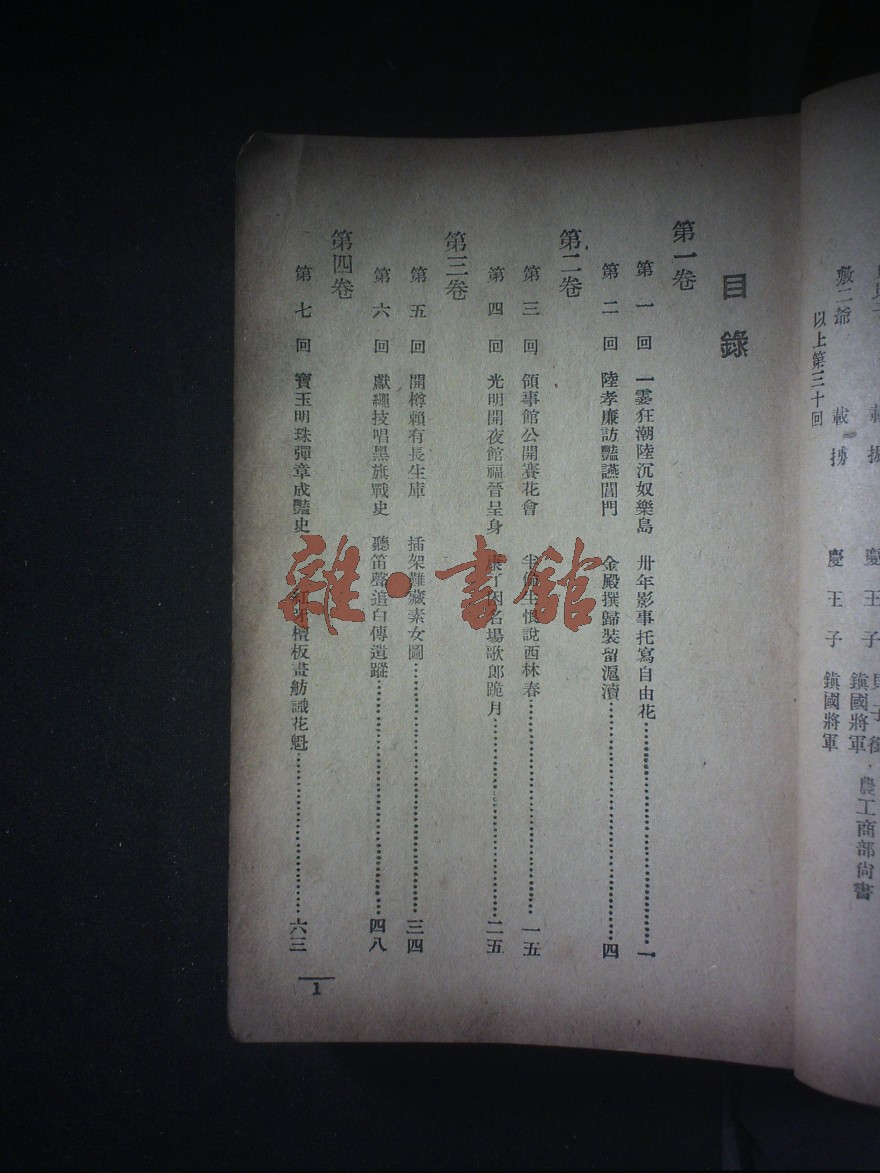 載振 慶王子 鎮國將軍・農工商部尚書
敷二爺 載搏 慶王子 鎮國將軍
以上第三十回
目錄
第一卷
第一回 一霎狂潮陸沉奴樂島 卅年影事托寫自由花 一
第二回 陸孝廉訪豔讌閶門 金殿撰歸裝留滬瀆 四
第二卷
第三回 領事館公開賽花會 說西林春 一五
第四回 光明開夜館福晉呈身 康了困名場歌郎跪月 二五
第三卷
第五回 開樽賴有長生庫 插架難藏素女圖 三四
第六回 獻繩技唱黑旗戰史 聽笛聲追白傅遺蹤 四八
第四卷
第七回 寶玉明珠彈章成豔史 紅牙檀板畫舫識花魁 六三
1
雜・書館